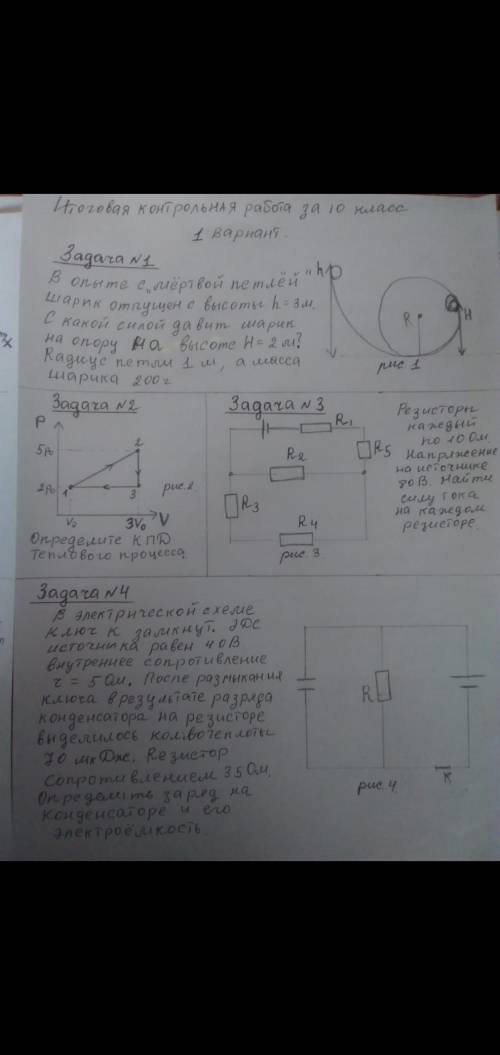 Итоговая контрольная работа за 10 класс
1 вариант.
Задача №1
В опыте с „мёртвой петлёй"
шарик отпущен с высоты h = 3м.
С какой силой давит шарик
на опору на высоте H = 2 м?
Rадиус петли 1 м, а масса
шарика 200г
h
R
H
рис 1
Задача №2
P
5p₀
2p₀
1
2
3
V₀
3V₀
V
рис.2
Определите КПД
теплового процесса.
Задача №3
R₁
R₂
R₅
R₃
R₄
рис. 3
Резисторы
каждый
по 10 Ом.
Напряжение
на источнике
80В. Найти
силу тока
на каждом
резисторе.
Задача №4
В электрической схеме
ключ К замкнут. ЭДС
источника равен 40В
внутреннее сопротивление
r = 5 Ом. После размыкания
ключа в результате разряда
конденсатора на резисторе
выделилось кол.во теплоты
70 мкДж. Rезистор
сопротивлением 35 Ом.
Определить заряд на
конденсаторе и его
электроёмкость.
R
K
рис. 4